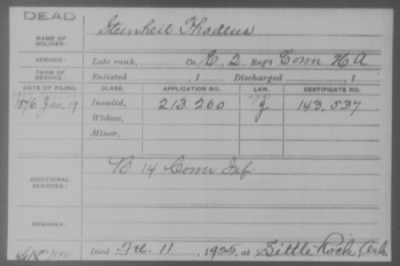 DEAD
NAME OF SOLDIER: Steinheil Thadeus
SERVICE: Late rank, Co. C, 2 Reg't Conn H A
TERM OF SERVICE: Enlisted , 1 Discharged , 1
DATE OF FILING. CLASS. APPLICATION NO. LAW. CERTIFICATE NO.
1876 Jan 19 Invalid, 213.260 g 143.537
Widow,
Minor,
ADDITIONAL SERVICES: B 14 Conn Inf
REMARKS:
Died 11, 1925, at Little Rock Ark